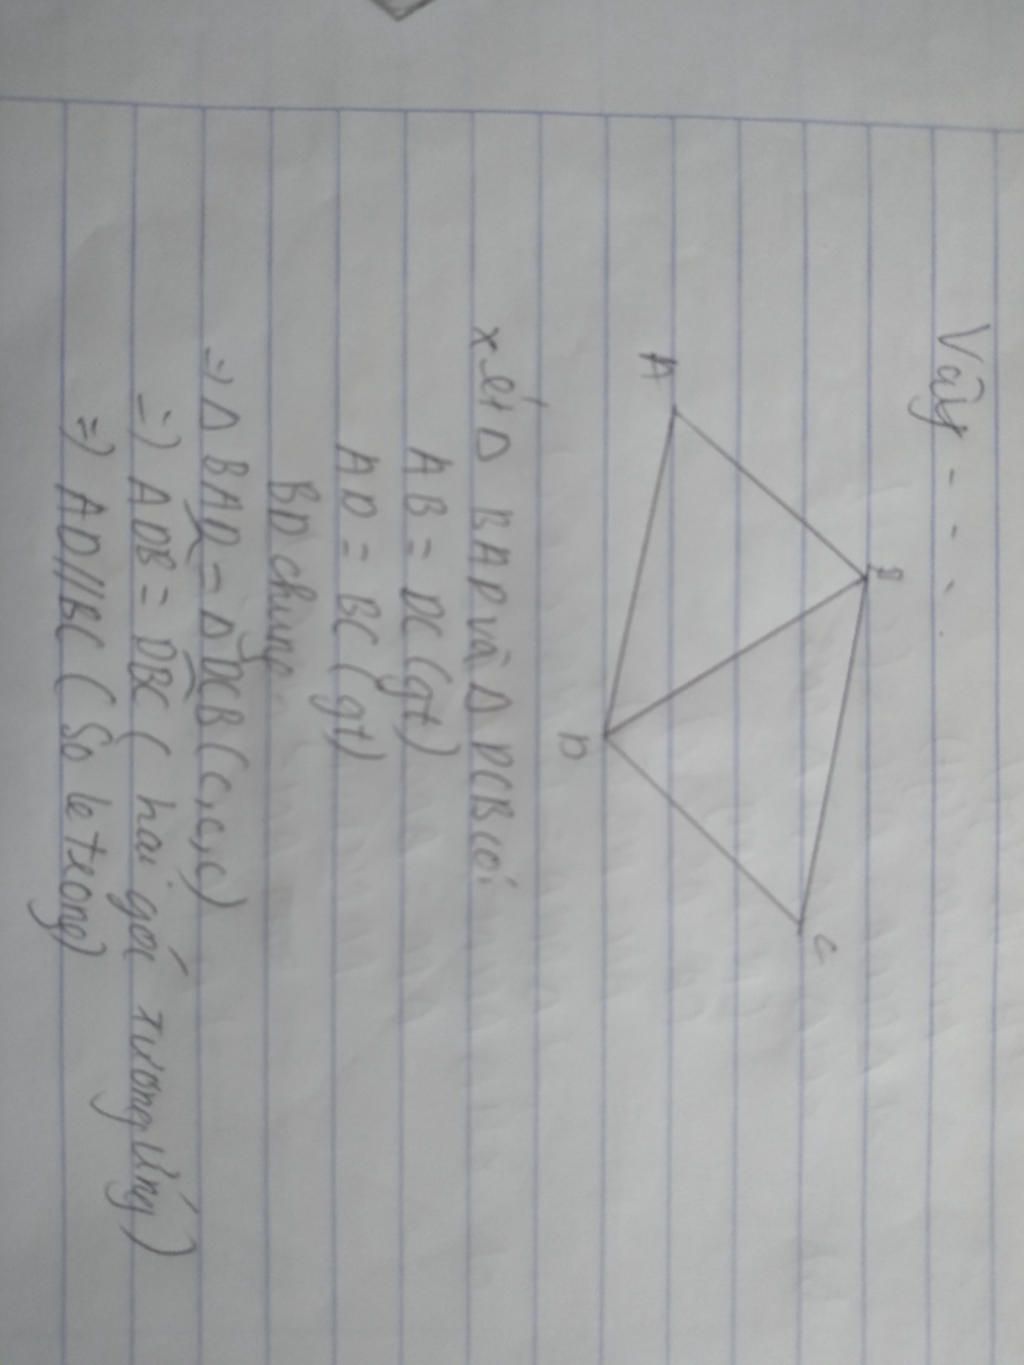 Vậy - - .
A
B
D
C
xét Δ BAD và Δ DCB có:
AB = DC (gt)
AD = BC (gt)
BD chung
=) Δ BAD = Δ DCB (c,c,c)
=) ADB = DBC ( hai góc tương ứng)
=) AD//BC ( So le trong)